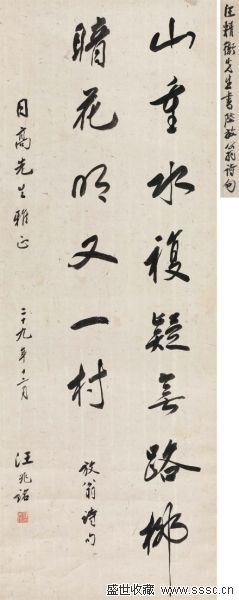 汪精衛先生書陸放翁詩句
山重水複疑無路栁
暗花明又一村
放翁詩句
日高先生雅正
二十九年十二月
汪兆銘
盛世收藏 www.sssc.cn
盛世收藏 www.sssc.cn